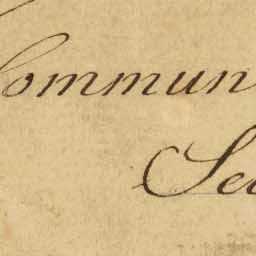 Commun
Se